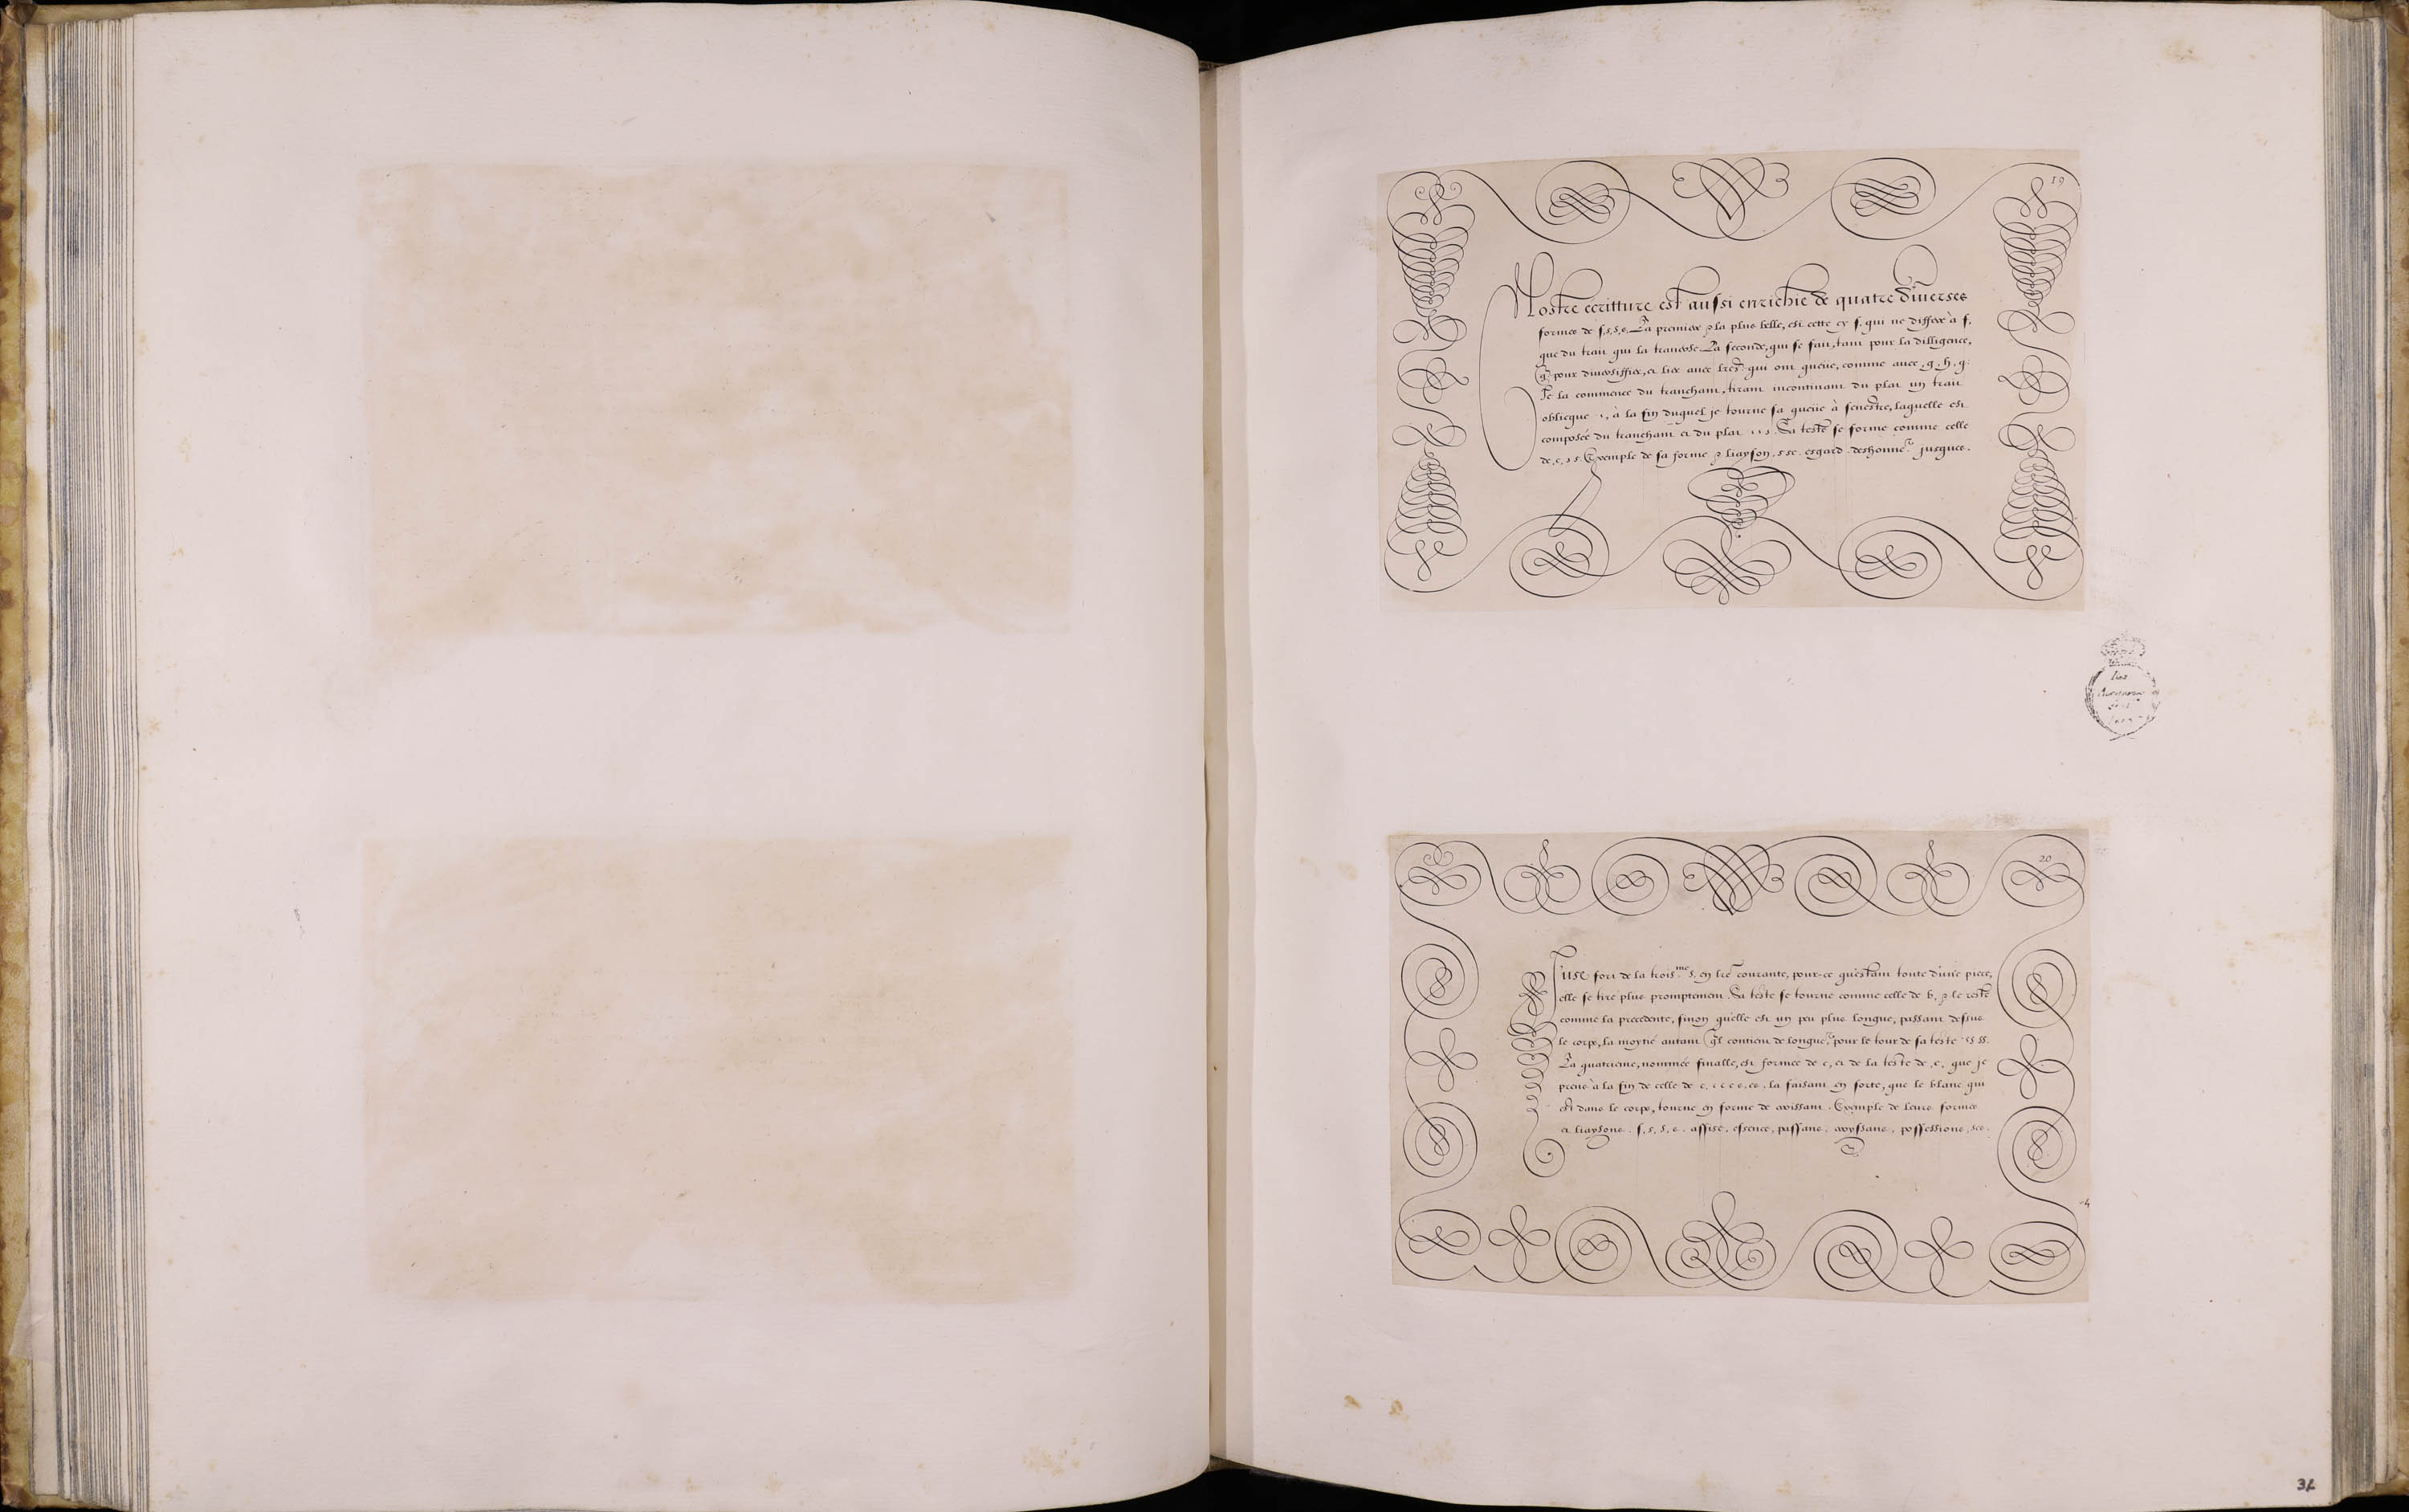 19
Nostre ecritture est aussi enrichie de quatre diuerses
formes de ſ,s,s,s. La premiere & la plus belle, est cette cy ſ. qui ne differe à f,
que du trait qui la trauerse. La seconde, qui se fait, tant pour la dilligence,
q̃ pour diuersiffier, et lier auec lrẽs qui ont queüe, comme auec, g, h, q.
Je la commence du tranchant, tirant incontinant du plat un trait
obliegue ı, à la fin duquel je tourne sa queüe à senestre, laquelle est
composée du tranchant et du plat. Sa teste se forme comme celle
de, c, Exemple de sa forme & liayson. esgard. deshonneʳ. jusques.
20
J'use fort de la trois.me s. en lrẽ courante, pour-ce qu'estant toute d'une piece,
elle se tire plus promptement. Sa teste se tourne comme celle de b, & le reste
comme la precedente, sinon qu'elle est un peu plus longue, passant dessus
le corps, la moytié autant q̃l contient de longueʳ, pour le tour de sa teste.
La quatrieme, nommée finalle, est formée de c, et de la teste de, e, que je
prens à la fin de celle de c. la faisant en sorte, que le blanc qui
est dans le corps, tourne en forme de croissant. Exemple de leurs formes
et liaysons. ſ, s, s, s. assise, essence, passans, croyssans, possessions,